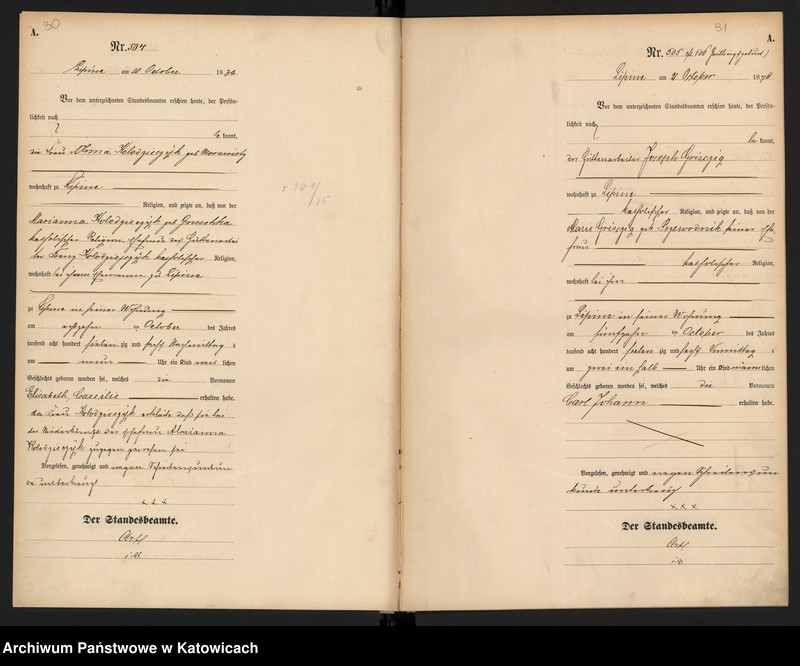 30
A.
Nr. 504
Lipine am 20 October 1876
Vor dem unterzeichneten Standesbeamten erschien heute, der Persön-
lichkeit nach
kannt,
die Frau Kolodzieczyk geb
wohnhaft zu Lipine
Religion, und zeigte an, daß von der
Marianna Kolodzieczyk geb
katholischer Religion, Ehefrau des Hüttenarbei
ter Kolodzieczyk katholischer Religion,
wohnhaft bei ihrem Ehemanne zu Lipine
zu Lipine in seiner Wohnung
am October des Jahres
tausend acht hundert sieben zig und sechs Nachmittag s
um neun Uhr ein Kind weib lichen
Geschlechts geboren worden sei, welches die Vornamen
Elisabeth, Caecilie erhalten habe.
die Frau Kolodzieczyk erklärte daß sie bei
der Niederkunft der Ehefrau Marianna
Kolodzieczyk zugegen gewesen sei
Vorgelesen, genehmigt und wegen Schreibensunkun
de unterkreuzt
x x x
Der Standesbeamte.
i.V.
31
A.
Nr. 505
Lipine am 21 October 1876
Vor dem unterzeichneten Standesbeamten erschien heute, der Persön-
lichkeit nach
be kannt,
der Hüttenarbeiter Joseph Griesczig
wohnhaft zu Lipine
katholischer Religion, und zeigte an, daß von der
Marie Griesczig geb seiner Ehe
frau
katholischer Religion,
wohnhaft bei ihm
zu Lipine in seiner Wohnung
am fünfzehn ten October des Jahres
tausend acht hundert sieben zig und sechs Vormittag s
um zwei ein halb Uhr ein Kind männ lichen
Geschlechts geboren worden sei, welches die Vornamen
Carl Johann erhalten habe.
Vorgelesen, genehmigt und wegen Schreibensun
kunde unterkreuzt
x x x
Der Standesbeamte.
i.V.
Archiwum Państwowe w Katowicach